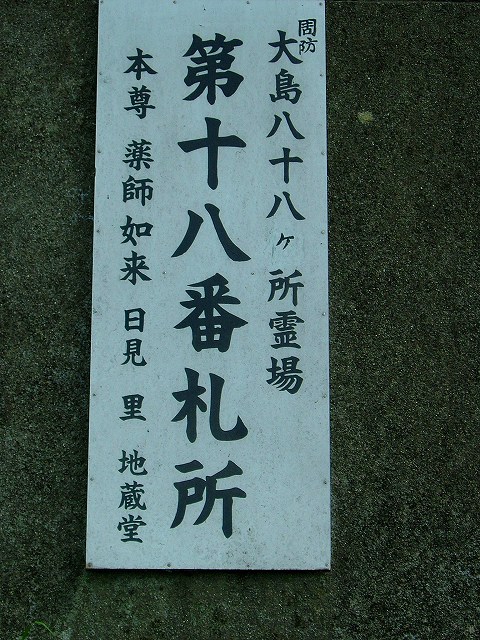 周防
大島八十八ヶ所霊場
第十八番札所
本尊 薬師如来 日見 里 地蔵堂